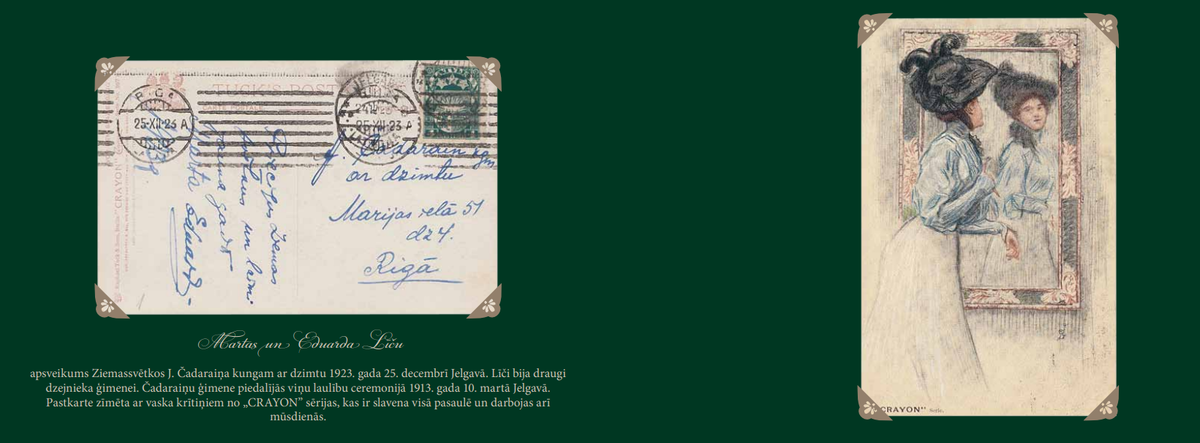 TUCK'S POST
CARTE POSTALE
RIGA
25-XII-23 A
25-XII-23 A
J. Čadarain kgm
ar dzimtu
Marijas ielā 51
dz 4.
Rīgā
Priecīgus Ziemas
svētkus un laimi
jaunā gadā
Marta Eduards
Martas un Eduarda Līču
apsveikums Ziemassvētkos J. Čadaraiņa kungam ar dzimtu 1923. gada 25. decembrī Jelgavā. Līči bija draugi
dzejnieka ģimenei. Čadaraiņu ģimene piedalījās viņu laulību ceremonijā 1913. gada 10. martā Jelgavā.
Pastkarte zīmēta ar vaska krītiņiem no „CRAYON” sērijas, kas ir slavena visā pasaulē un darbojas arī
mūsdienās.
"CRAYON"